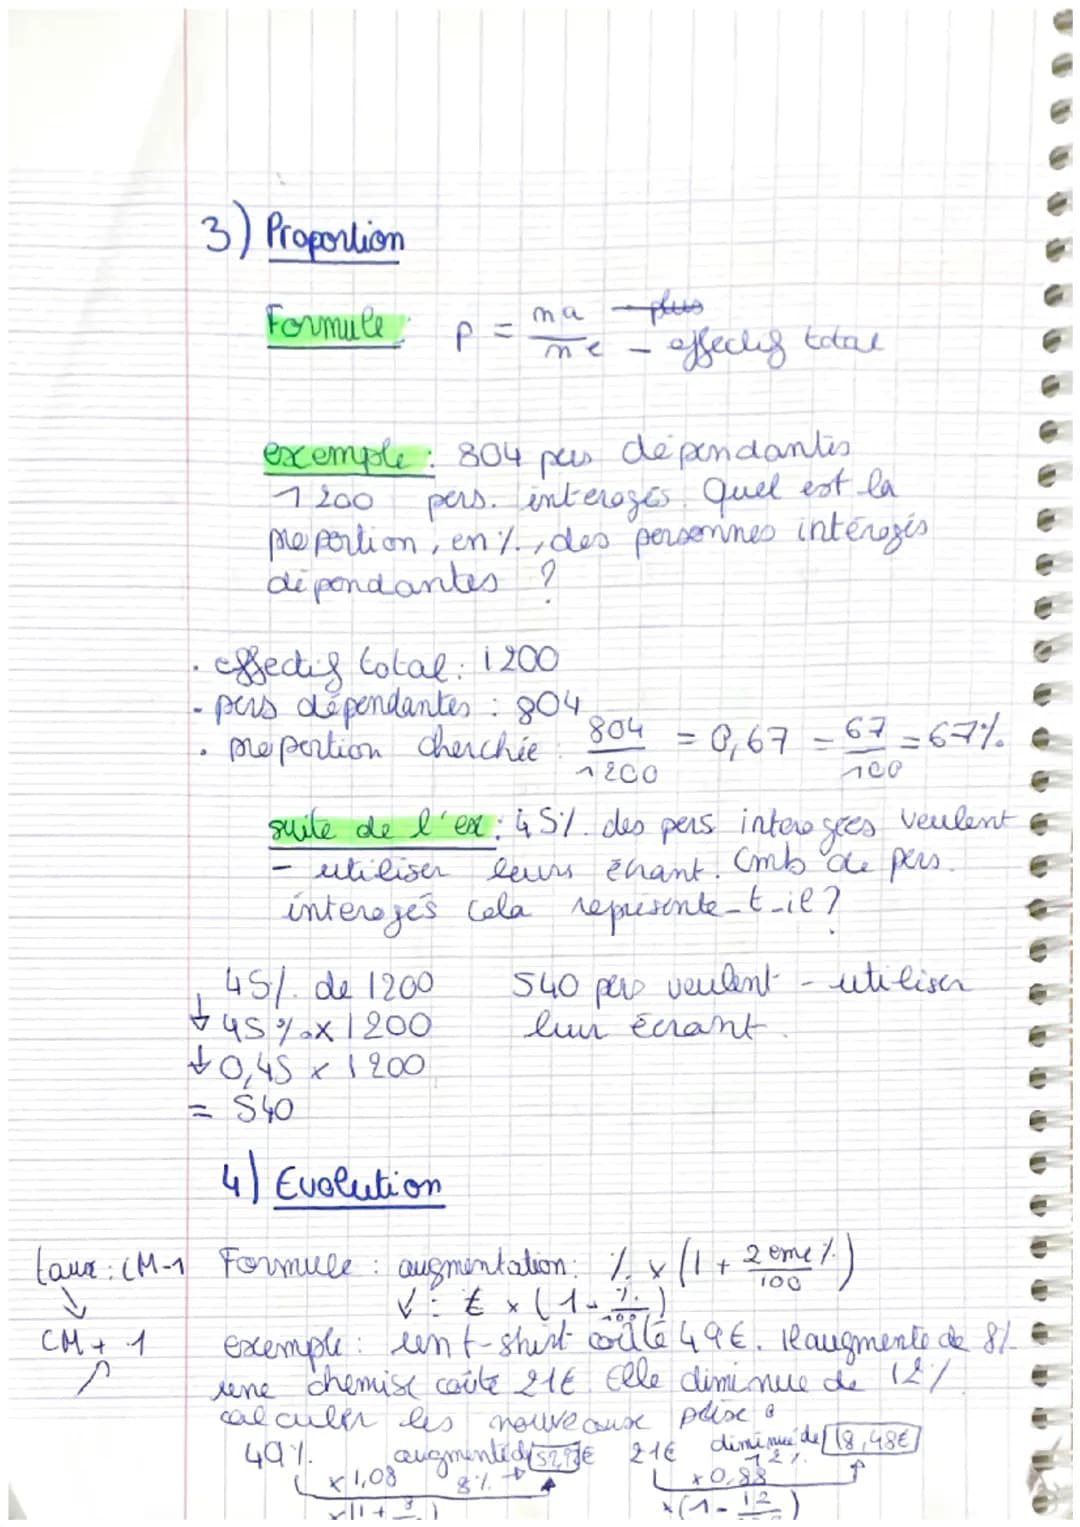 3) Proportion
Formule : p = na plus
ne - effectif total
exemple : 804 pers dépendantes
1200 pers. interogés. Quel est la
proportion, en %, des personnes intérogés
dépendantes ?
. effectif total : 1200
- pers dépendantes : 804
. proportion cherchée : 804/1200 = 0,67 = 67/100 = 67%.
suite de l'ex : 45%. des pers interogées veulent
- utiliser leurs écrant. Cmb de pers.
interogés cela représente-t-il ?
45%. de 1200 540 pers veulent - utiliser
↓ 45% x 1200 leur écrant.
↓ 0,45 x 1200
= 540
4) Evolution
taux : CM-1 Formule : augmentation : % x (1 + 2eme %/100)
↓ : € x (1 - %/100)
CM + 1 exemple : un t-shirt coûte 49€. Il augmente de 8%
une chemise coûte 21€ Elle diminue de 12%
calculer les nouveaux prix :
49%. augmenté de 52,92€ 21€ diminué de 18,48€
x 1,08 8% 12%.
x 0,88
x(1 + 8 ) x(1 - 12 )